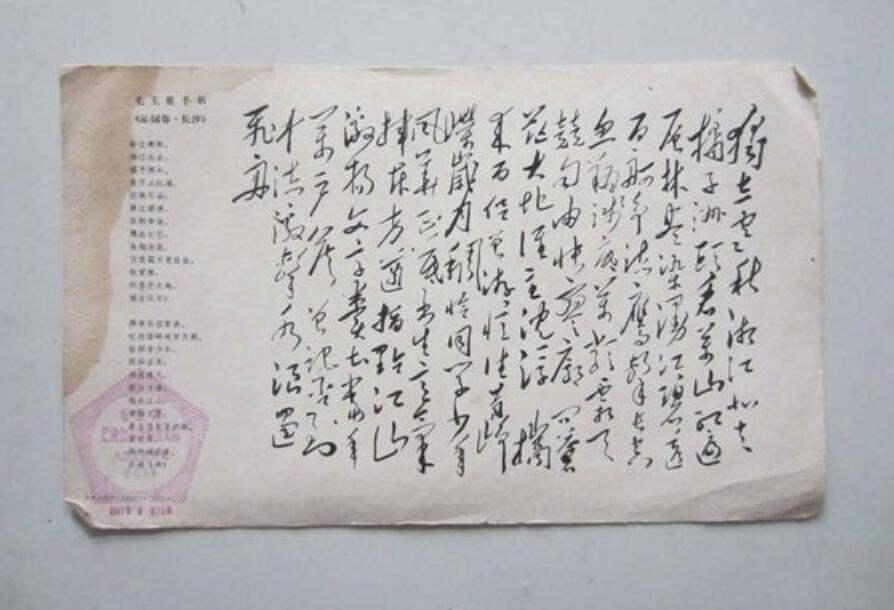 獨立寒秋湘江北去
橘子洲頭看萬山紅遍
層林盡染漫江碧透
百舸爭流鷹擊長空
魚翔淺底萬類霜天
競自由悵寥廓問蒼
茫大地誰主沈浮 攜
來百侶曾游憶往昔崢
嶸歲月稠恰同學少年
風華正茂書生意氣
揮斥方遒指點江山
激揚文字糞土當年
萬戶侯曾記否到
中流擊水浪遏
飛舟
毛主席手书
《沁园春·长沙》
独立寒秋，
湘江北去，
橘子洲头。
看万山红遍，
层林尽染；
漫江碧透，
百舸争流。
鹰击长空，
鱼翔浅底，
万类霜天竞自由。
怅寥廓，
问苍茫大地，
谁主沉浮？
携来百侣曾游，
忆往昔峥嵘岁月稠。
恰同学少年，
风华正茂；
书生意气，
挥斥方遒。
指点江山，
激扬文字，
粪土当年万户侯。
曾记否，
到中流击水，
浪遏飞舟？